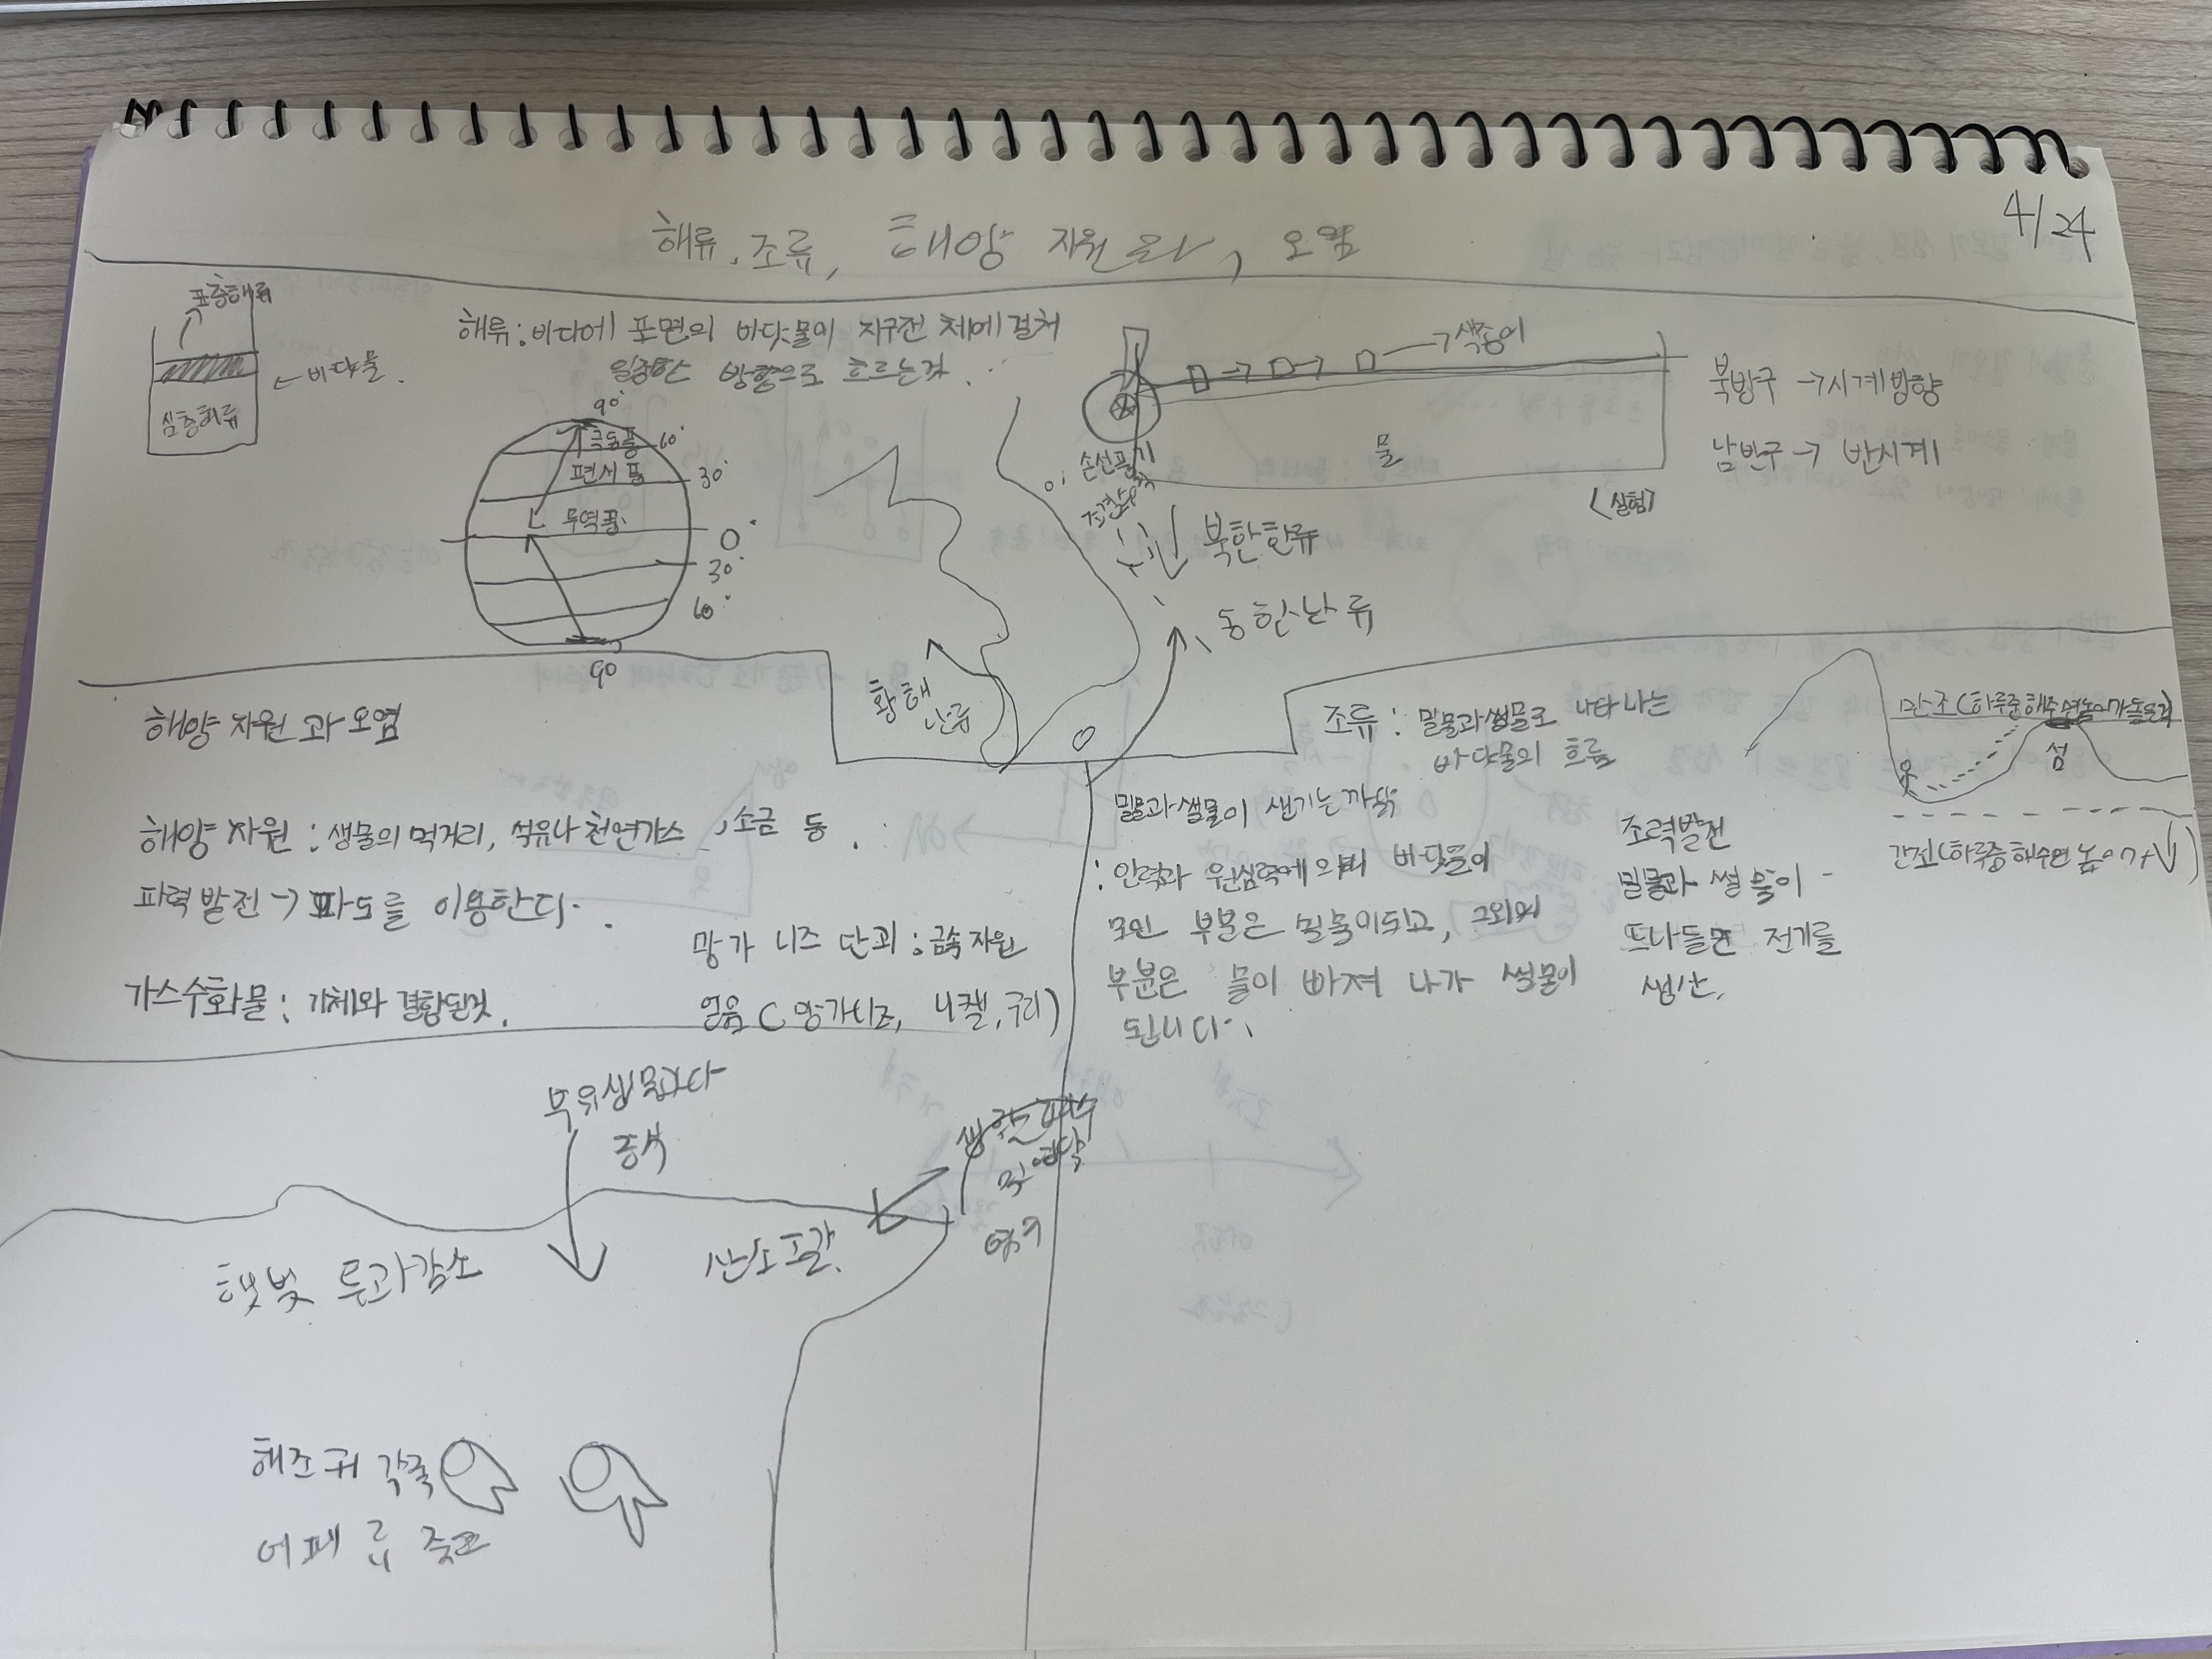 4/24
해류, 조류, 해양 자원과, 오염
표층해류
← 바닷물
심층해류
해류 : 바다에 표면의 바닷물이 지구전체에 걸쳐
일종한 방향으로 흐르는것
90°
극동풍 60°
편서풍 30°
무역풍
0°
30°
60°
90
→ 색종이
물
손선풍기
<실험>
북방구 → 시계방향
남반구 → 반시계
조경수역
북한한류
동한난류
황해
난류
해양 자원과 오염
해양 자원 : 생물의 먹거리, 석유나 천연가스, 소금 등
파력발전 → 파도를 이용한다.
가스수화물 : 기체와 결합된것.
망가니즈 단괴 : 금속자원
얻음 ( 망가니즈, 니켈, 구리)
조류 : 밀물과썰물로 나타나는
바닷물의 흐름
밀물과썰물이 생기는 까닭
: 인력과 원심력에 의해 바닷물이
모인 부분은 밀물이되고, 그외의
부분은 물이 빠져 나가 썰물이
된니다.
조력발전
밀물과 썰물이
뜨나들면 전기를
생산.
섬
간조(하루중 해수면 높이가↓)
부유생물
증식
생활
햇빛 투과감소
산소고갈
어패류 죽고